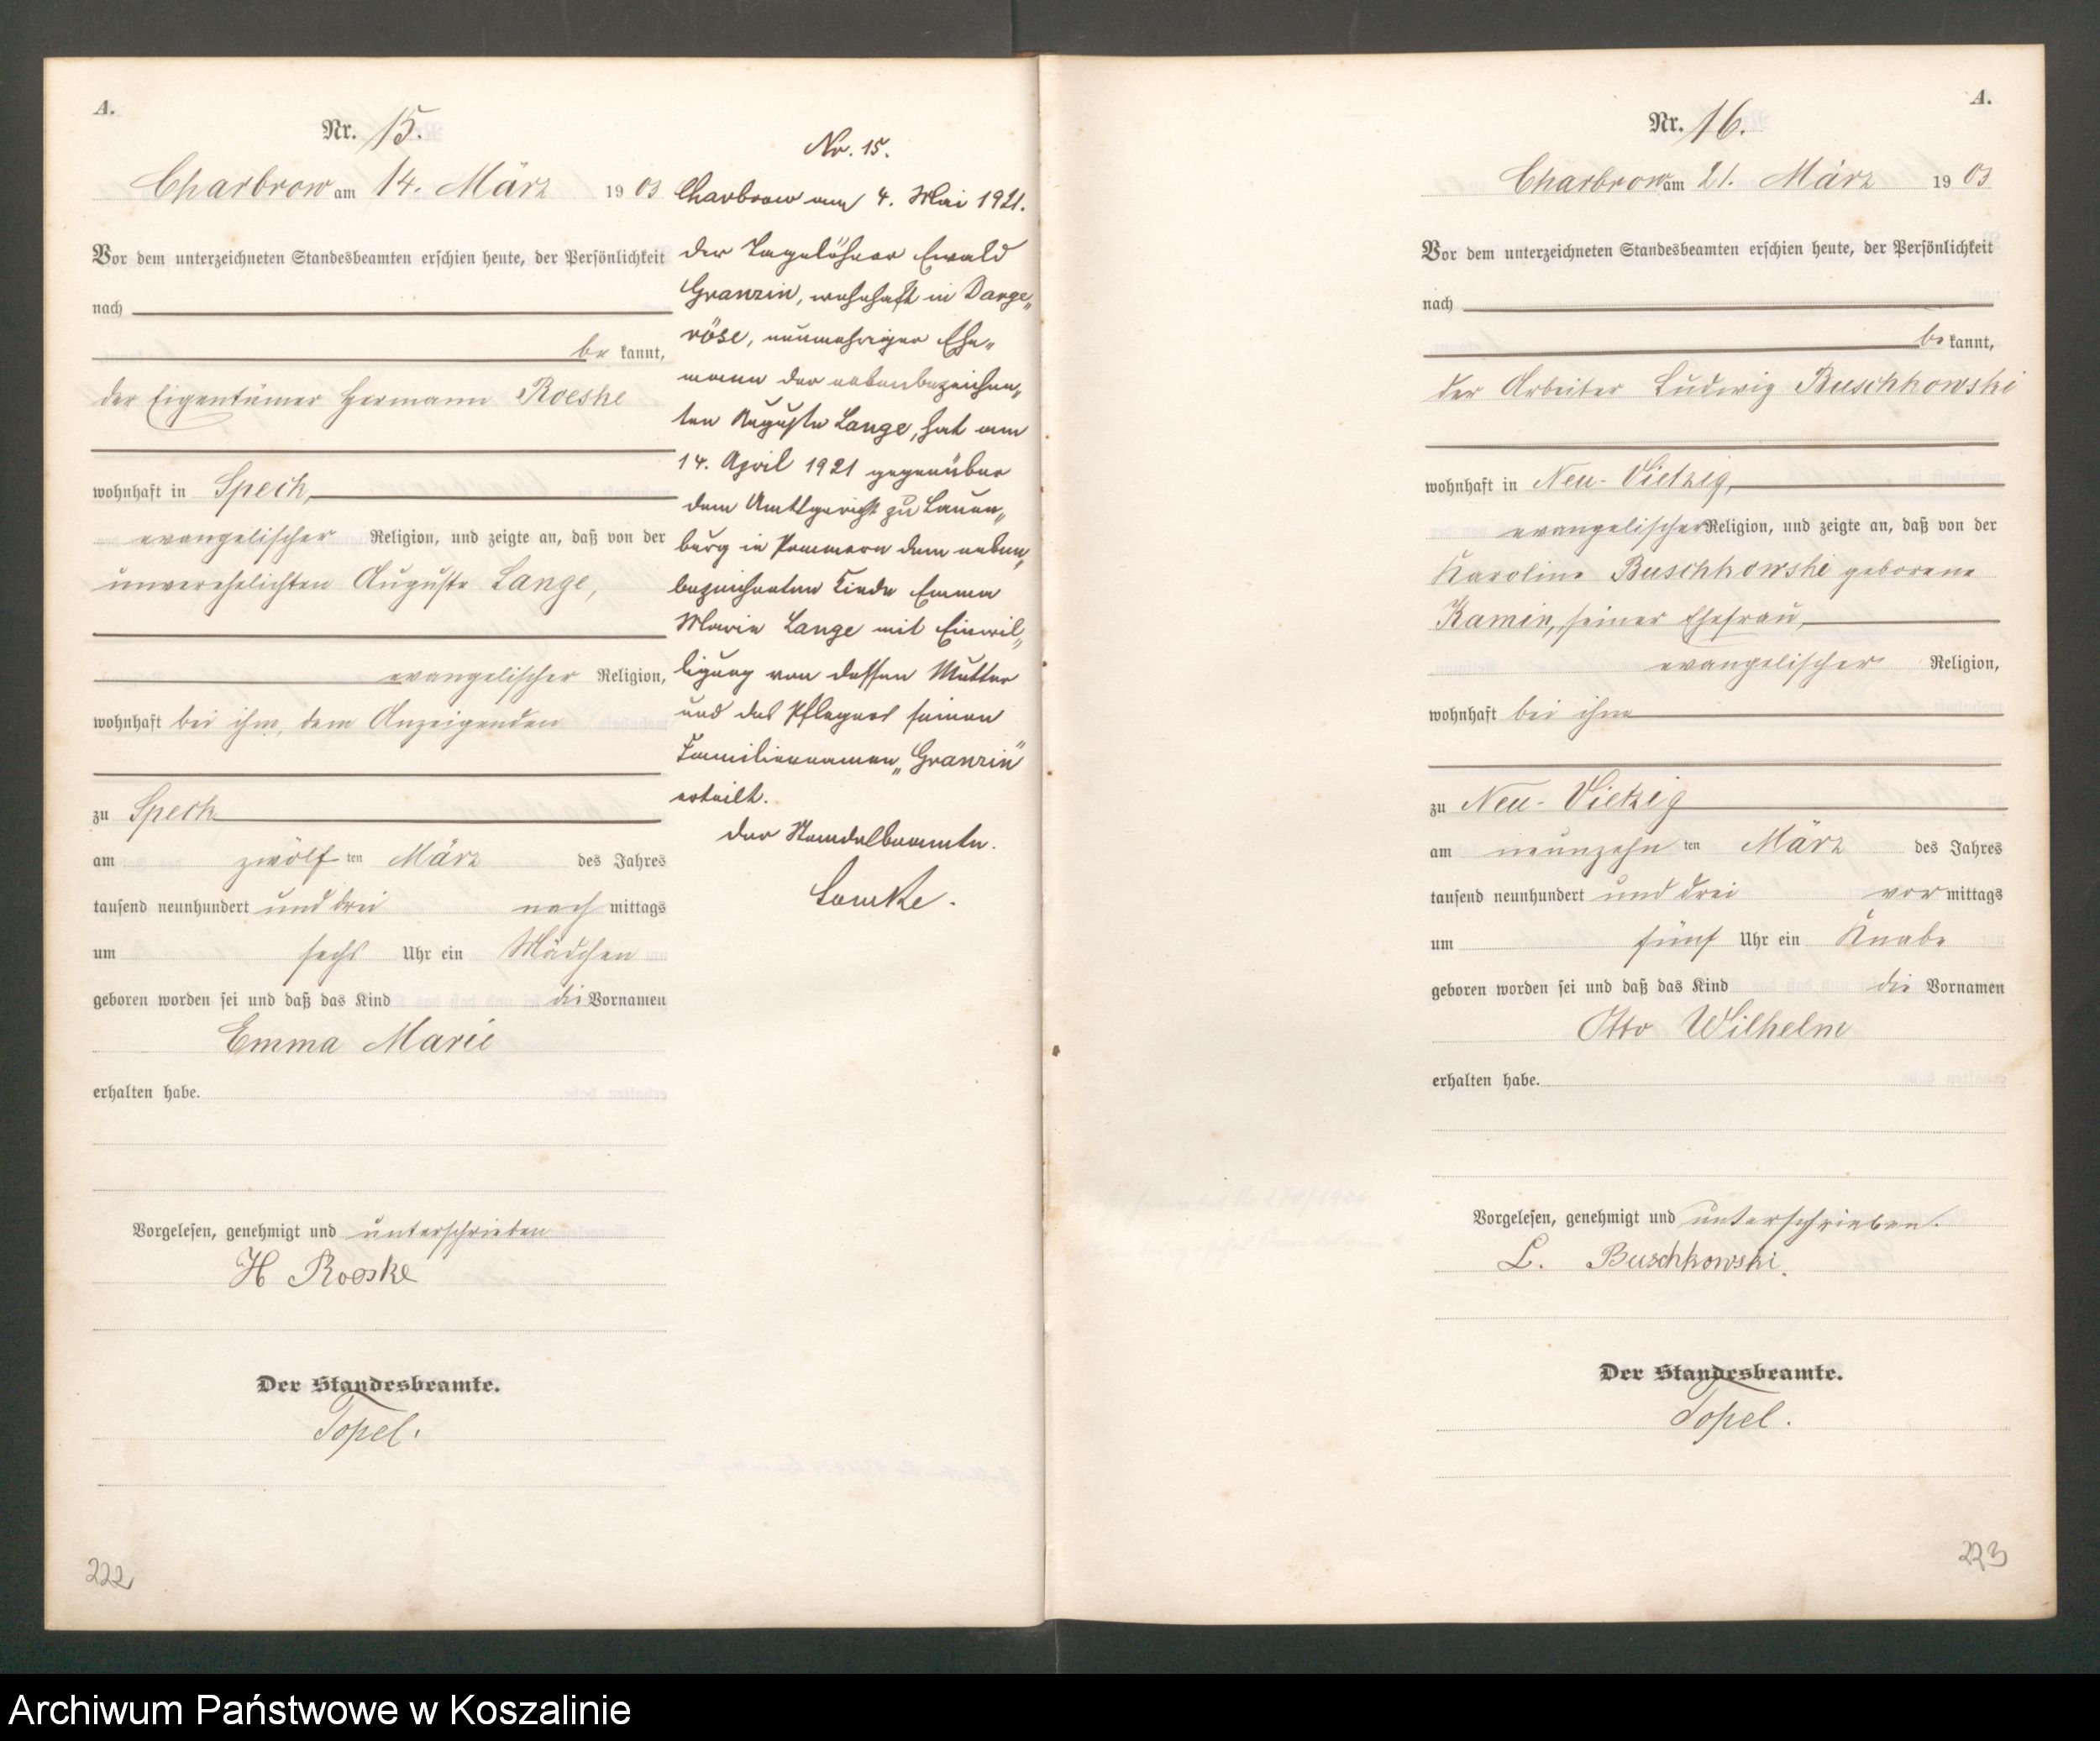 A.
Nr. 15.
Charbrow am 14. März 1903
Vor dem unterzeichneten Standesbeamten erschien heute, der Persönlichkeit
nach
be kannt,
der Eigentümer Hermann Roeske
wohnhaft in Speck,
evangelischer Religion, und zeigte an, daß von der
unverehelichten Auguste Lange,
evangelischer Religion,
wohnhaft bei ihm, dem Anzeigenden
zu Speck
am zwölf ten März des Jahres
tausend neunhundert und drei nach mittags
um sechs Uhr ein Mädchen
geboren worden sei und daß das Kind die Vornamen
Emma Marie
erhalten habe.
Vorgelesen, genehmigt und unterschrieben
H Roeske
Der Standesbeamte.
Topel.
222
Nr. 15.
Charbrow am 4. Mai 1921.
Der Tagelöhner Ewald
Granzin, wohnhaft in Darge„
röse, nunmehriger Ehe„
mann der nebenbezeichne„
ten Auguste Lange, hat am
14. April 1921 gegenüber
dem Amtsgericht zu Lauen„
burg in Pommern dem neben„
bezeichneten Kinde Emma
Marie Lange mit Einwil„
ligung von dessen Mutter
und des Pflegers seinen
Familiennamen „Granzin“
erteilt.
Der Standesbeamte.
A.
Nr. 16.
Charbrow am 21. März 1903
Vor dem unterzeichneten Standesbeamten erschien heute, der Persönlichkeit
nach
be kannt,
der Arbeiter Ludwig Buschkowski
wohnhaft in Neu-Vietzig,
evangelischer Religion, und zeigte an, daß von der
Karoline Buschkowski geborene
Kamin, seiner Ehefrau,
evangelischer Religion,
wohnhaft bei ihm
zu Neu-Vietzig
am neunzehn ten März des Jahres
tausend neunhundert und drei vor mittags
um fünf Uhr ein Knabe
geboren worden sei und daß das Kind die Vornamen
Otto Wilhelm
erhalten habe.
Vorgelesen, genehmigt und unterschrieben.
L. Buschkowski.
Der Standesbeamte.
Topel.
223
Archiwum Państwowe w Koszalinie